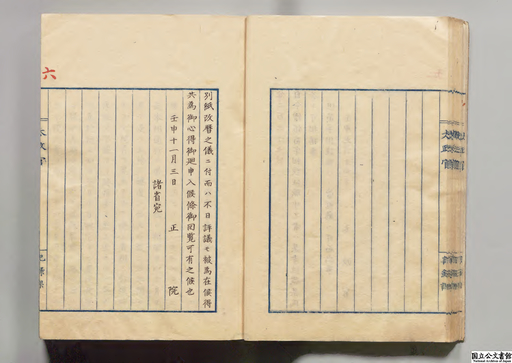 別紙改暦之儀ニ付而ハ不日詳議モ被為在候得
共為御心得御廻申入候條御回覧可有之候也
壬申十一月三日 正院
諸省宛
六
太政官
太政官
国立公文書館
National Archives of Japan